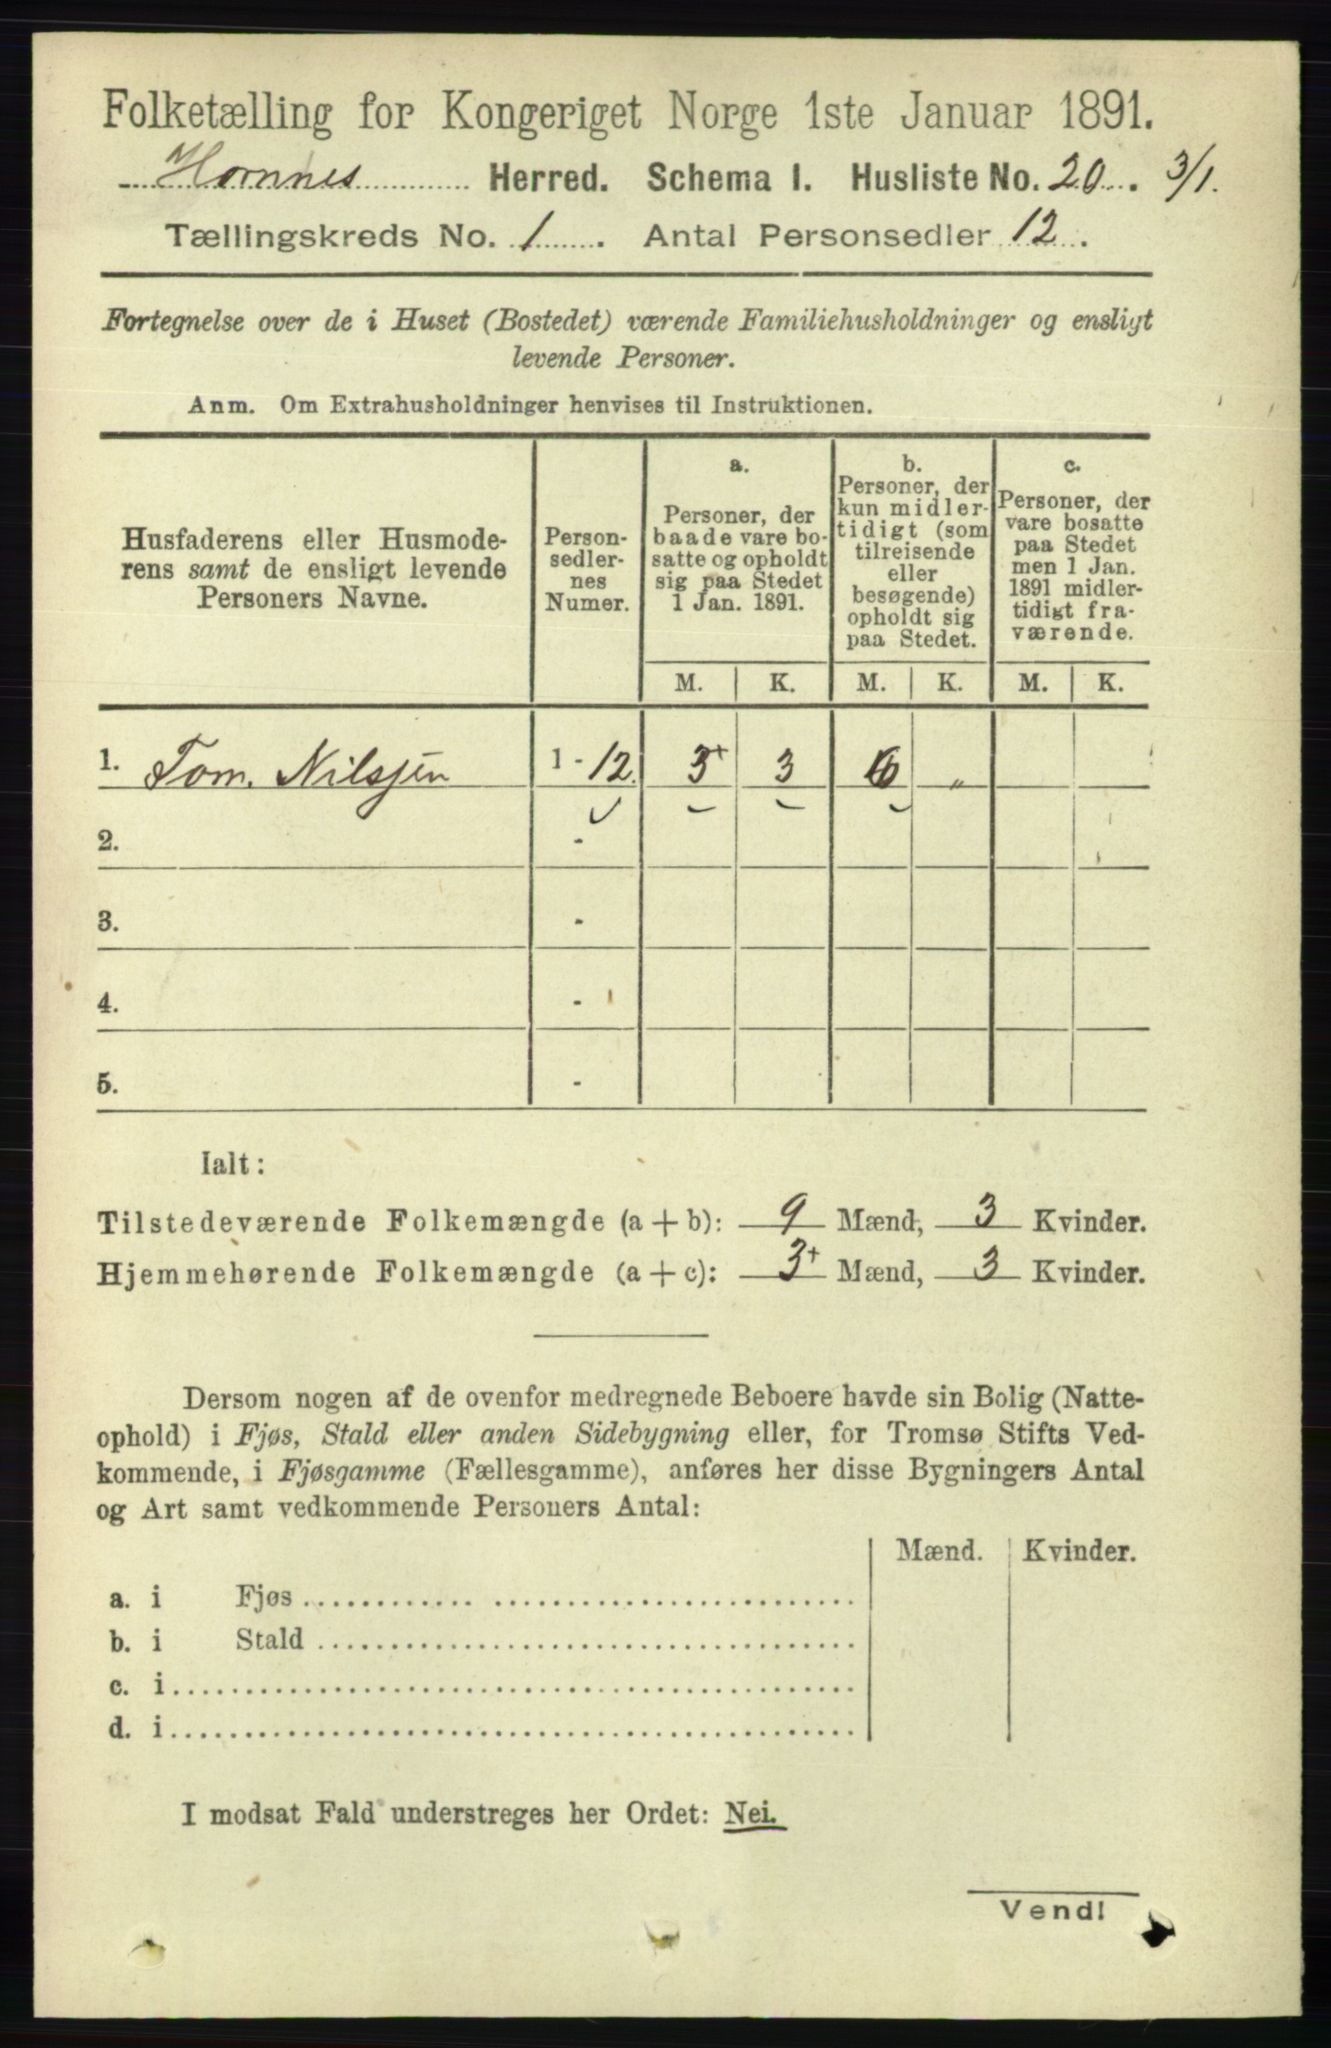 Folketælling for Kongeriget Norge 1ste Januar 1891.
Hornnes Herred. Schema I. Husliste No. 20. 3/1.
Tællingskreds No. 1. Antal Personsedler 12.
Fortegnelse over de i Huset (Bostedet) værende Familiehusholdninger og ensligt
levende Personer.
Anm. Om Extrahusholdninger henvises til Instruktionen.
Husfaderens eller Husmode-
rens samt de ensligt levende
Personers Navne.
Person-
sedler-
nes
Numer.
a.
Personer, der
baade vare bo-
satte og opholdt
sig paa Stedet
1 Jan. 1891.
b.
Personer, der
kun midler-
tidigt (som
tilreisende
eller
besøgende)
opholdt sig
paa Stedet.
c.
Personer, der
vare bosatte
paa Stedet
men 1 Jan.
1891 midler-
tidigt fra-
værende.
M. K. M. K. M. K.
1. Tom. Nilsjen 1 - 12. 3+ 3 6 "
2. -
3. -
4. -
5. -
Ialt:
Tilstedeværende Folkemængde (a + b): 9 Mænd, 3 Kvinder.
Hjemmehørende Folkemængde (a + c): 3+ Mænd, 3 Kvinder.
Dersom nogen af de ovenfor medregnede Beboere havde sin Bolig (Natte-
ophold) i Fjøs, Stald eller anden Sidebygning eller, for Tromsø Stifts Ved-
kommende, i Fjøsgamme (Fællesgamme), anføres her disse Bygningers Antal
og Art samt vedkommende Personers Antal:
Mænd. Kvinder.
a. i Fjøs
b. i Stald
c. i
d. i
I modsat Fald understreges her Ordet: Nei.
Vend!